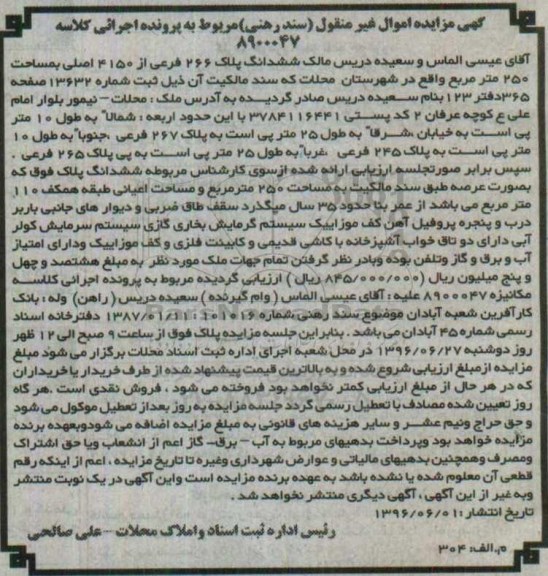 آگهی مزایده اموال غیر منقول (سند رهنی) مربوط به پرونده اجرائی کلاسه
۸۹۰۰۰۴۷
آقای عیسی الماس و سعیده دریس مالک ششدانگ پلاک ۲۶۶ فرعی از ۴۱۵۰ اصلی بمساحت
۲۵۰ متر مربع واقع در شهرستان محلات که سند مالکیت آن ذیل ثبت شماره ۱۳۶۳۲ صفحه
۳۶۵ دفتر ۱۲۳ بنام سعیده دریس صادر گردیده به آدرس ملک : محلات - نیمور بلوار امام
علی ع کوچه عرفان ۲ کد پستی ۳۷۸۴۱۱۶۴۴۱ با این حدود اربعه : شمالاً به طول ۱۰ متر
پی است به خیابان ،شرقاً به طول ۲۵ متر پی است به پلاک ۲۶۷ فرعی ،جنوباً به طول ۱۰
متر پی است به پلاک ۲۴۵ فرعی ،غرباً به طول ۲۵ متر پی است به پی پلاک ۲۶۵ فرعی .
سپس برابر صورتجلسه ارزیابی ارائه شده ازسوی کارشناس مربوطه ششدانگ پلاک فوق که
بصورت عرصه طبق سند مالکیت به مساحت ۲۵۰ مترمربع و مساحت اعیانی طبقه همکف ۱۱۰
متر مربع می باشد از عمر بنا حدود ۳۵ سال میگذرد سقف طاق ضربی و دیوار های جانبی باربر
درب و پنجره پروفیل آهن کف موزاییک سیستم گرمایش بخاری گازی سیستم سرمایش کولر
آبی دارای دو تاق خواب آشپزخانه با کاشی قدیمی و کابینت فلزی و کف موزاییک ودارای امتیاز
آب و برق و گاز وتلفن بوده وبادر نظر گرفتن تمام جهات ملک مورد نظر به مبلغ هشتصد و چهل
و پنج میلیون ریال (۸۴۵/۰۰۰/۰۰۰ ریال ) ارزیابی گردیده مربوط به پرونده اجرائی کلاسه
مکانیزه ۸۹۰۰۰۴۷ علیه : آقای عیسی الماس ( وام گیرنده ) سعیده دریس ( راهن) وله : بانک
کارآفرین شعبه آبادان موضوع سند رهنی شماره ۱۰۱۰۱۶-۱۳۸۷/۰۱/۱۱ دفترخانه اسناد
رسمی شماره ۴۵ آبادان می باشد . بنابراین جلسه مزایده پلاک فوق از ساعت ۹ صبح الی ۱۲ ظهر
روز دوشنبه ۱۳۹۶/۰۶/۲۷ در محل شعبه اجرای اداره ثبت اسناد محلات برگزار می شود مبلغ
مزایده ازمبلغ ارزیابی شروع شده و به بالاترین قیمت پیشنهاد شده از طرف خریدار یا خریداران
که در هر حال از مبلغ ارزیابی کمتر نخواهد بود فروخته می شود ، فروش نقدی است .هر گاه
روز تعیین شده مصادف با تعطیل رسمی گردد جلسه مزایده به روز بعداز تعطیل موکول می شود
و حق حراج ونیم عشر و سایر هزینه های قانونی به مبلغ مزایده اضافه می شودوبعهده برنده
مزایده خواهد بود وپرداخت بدهیهای مربوط به آب - برق- گاز اعم از انشعاب ویا حق اشتراک
ومصرف وهمچنین بدهیهای مالیاتی و عوارض شهرداری وغیره تا تاریخ مزایده ، اعم از اینکه رقم
قطعی آن معلوم شده یا نشده باشد به عهده برنده مزایده است واین آگهی در یک نوبت منتشر
وبه غیر از این آگهی ، آگهی دیگری منتشر نخواهد شد .
تاریخ انتشار : ۱۳۹۶/۰۶/۰۱
رئیس اداره ثبت اسناد واملاک محلات - علی صالحی
م.الف: ۳۰۴